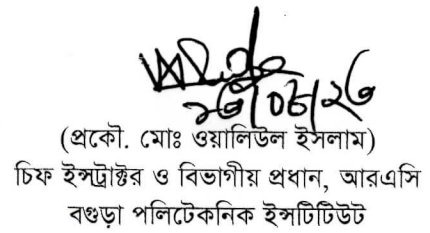 (প্রকৌ. মোঃ ওয়ালিউল ইসলাম)
চিফ ইন্সট্রাক্টর ও বিভাগীয় প্রধান, আরএসি
বগুড়া পলিটেকনিক ইন্সটিটিউট